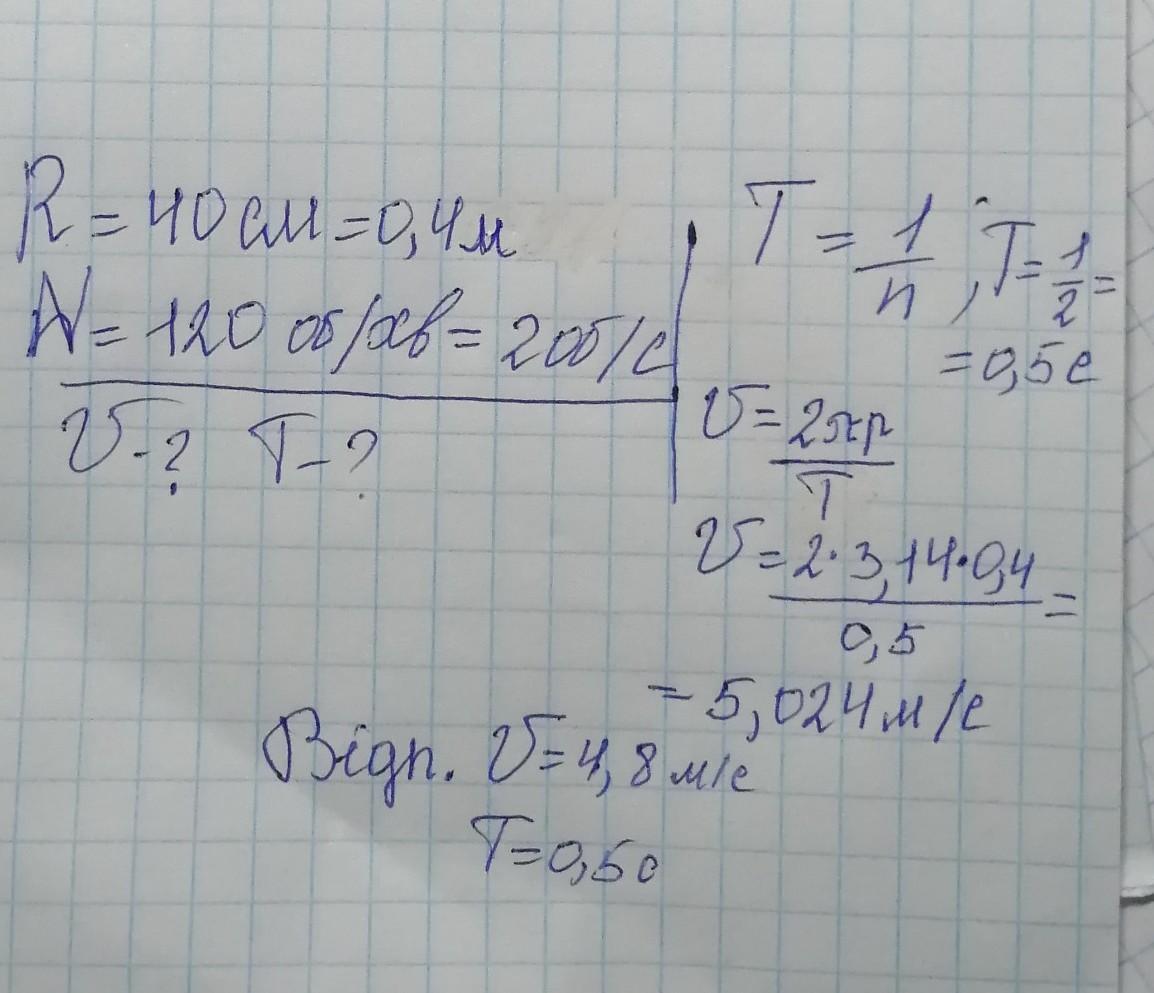 R = 40 см = 0,4м
N = 120 об/хв = 2об/с
υ - ? T - ?
T = 1/n ; T = 1/2 =
= 0,5с
υ = 2πr/T
υ = 2·3,14·0,4/0,5 =
= 5,024 м/с
Відп. υ = 4,8 м/с
T = 0,5с